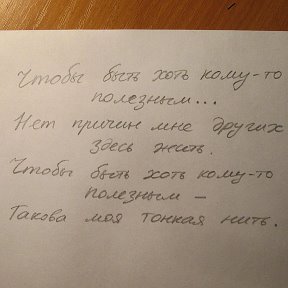 Чтобы быть хоть кому-то
полезным...
Нет причин мне других
здесь жить.
Чтобы быть хоть кому-то
полезным –
Такова моя тонкая нить.